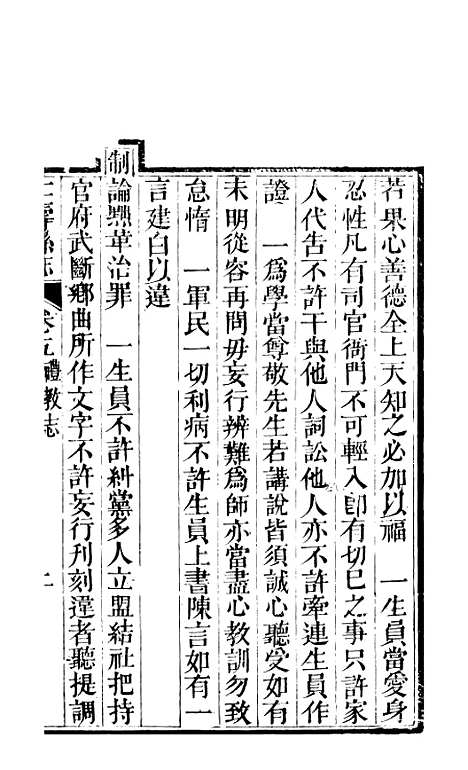 若果心善德全上天知之必加以福　一生員當愛身
忍性凡有司官衙門不可輕入卽有切巳之事只許家
人代告不許干與他人詞訟他人亦不許牽連生員作
證　一爲學當尊敬先生若講說皆須誠心聽受如有
未明從容再問毋妄行辨難爲師亦當盡心教訓勿致
怠惰　一軍民一切利病不許生員上書陳言如有一
言建白以違
制論黜革治罪　一生員不許糾黨多人立盟結社把持
官府武斷鄉曲所作文字不許妄行刊刻違者聽提調
寧縣志　卷五禮教志